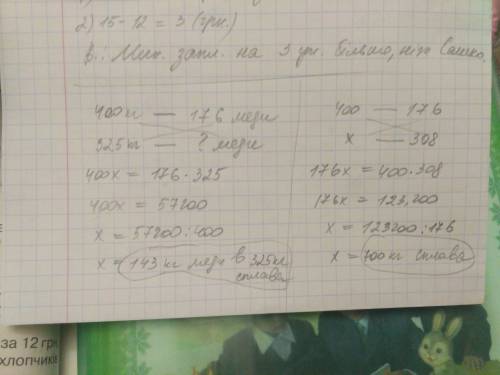 2) 15 - 12 = 3 (грн.)
В.: Мик. запл. на 3 грн. більше, ніж Сашко.
400 кг — 176 меди
325 кг — ? меди
400x = 176 · 325
400x = 57200
x = 57200 : 400
x = 143 кг меди в 325 кг
сплава
400 — 176
x — 308
176x = 400 · 308
176x = 123,200
x = 123200 : 176
x = 700 кг сплава
за 12 грн
хлопчики